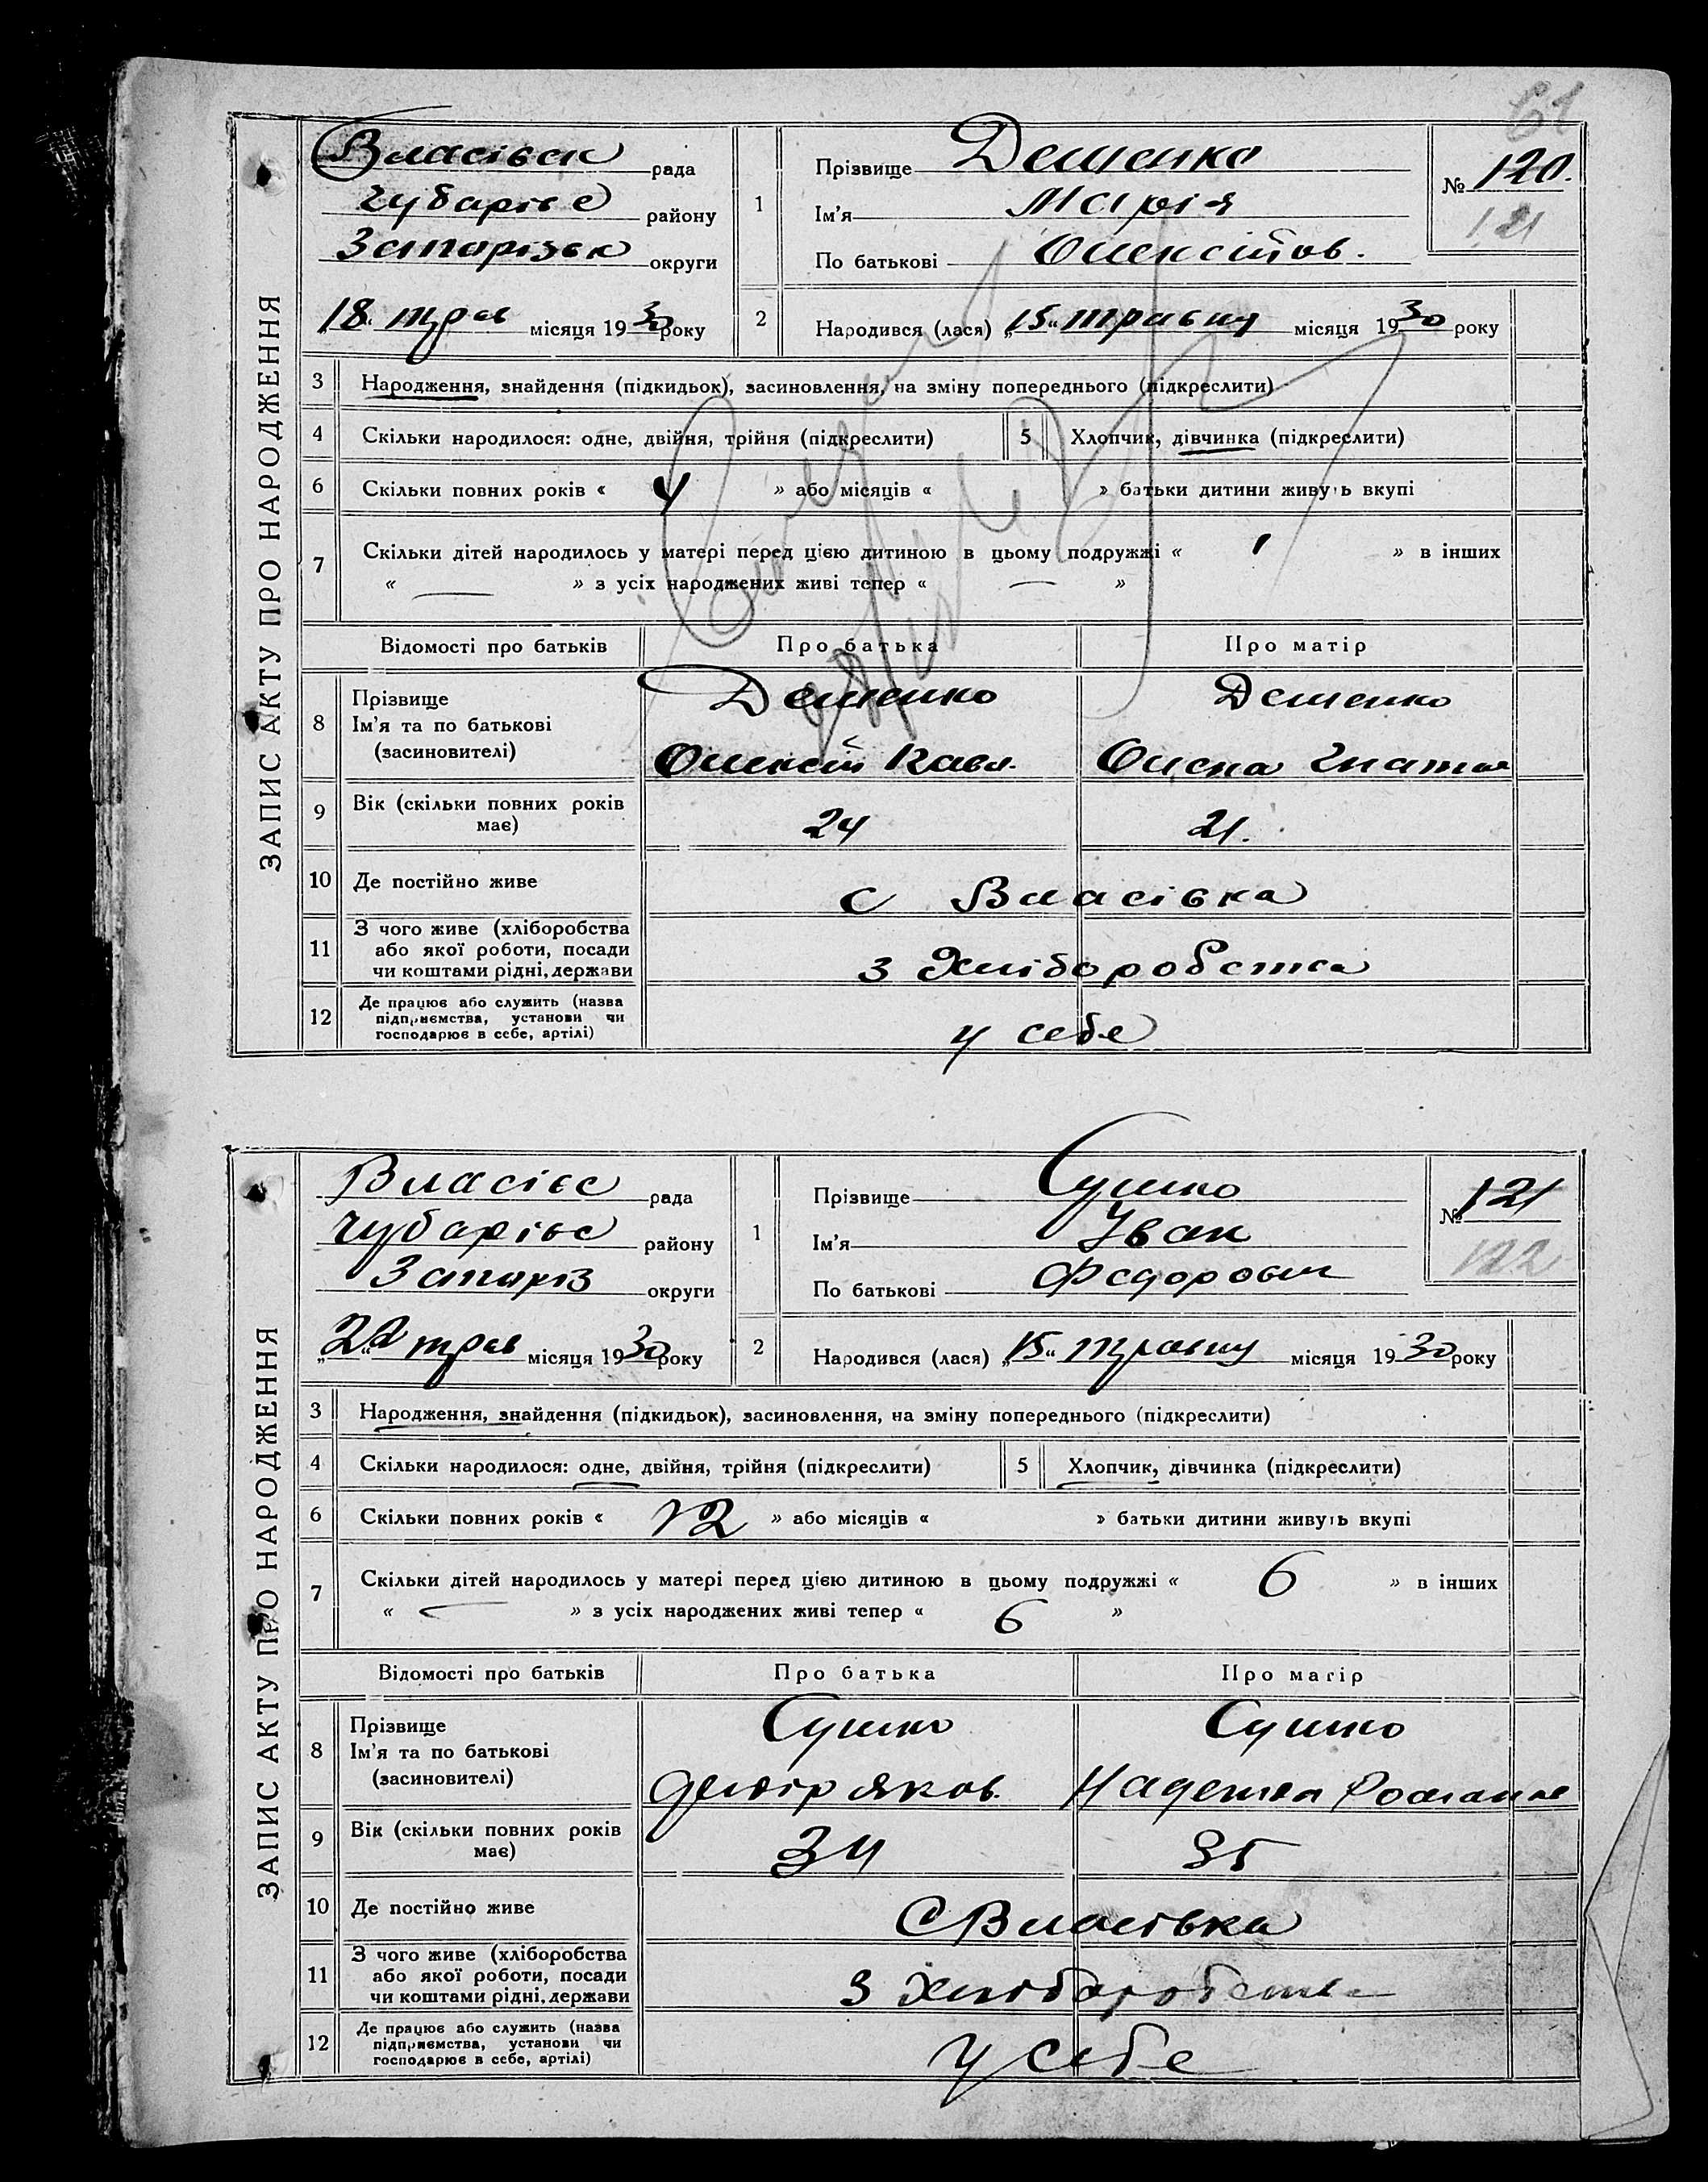 61
ЗАПИС АКТУ ПРО НАРОДЖЕННЯ
Власівськ рада
Чубарівс району
Запорізьк округи
„18“ трав місяця 1930 року
1
Прізвище Деменко
Ім'я Марія
По батькові Олексійов.
№ 120.
121
2 Народився (лася) „15“ травня місяця 1930 року
3 Народження, знайдення (підкидьок), засиновлення, на зміну попереднього (підкреслити)
4 Скільки народилося: одне, двійня, трійня (підкреслити) 5 Хлопчик, дівчинка (підкреслити)
6 Скільки повних років « 4 » або місяців « » батьки дитини живуть вкупі
7 Скільки дітей народилось у матері перед цією дитиною в цьому подружжі « 1 » в інших
« — » з усіх народжених живі тепер « — »
Відомості про батьків Про батька Про матір
8 Прізвище
Ім'я та по батькові
(засиновителі)
Деменко Деменко
Олексій Павл. Олена Гнатов
9 Вік (скільки повних років має) 24 21.
10 Де постійно живе с Власівка
11 З чого живе (хліборобства
або якої роботи, посади
чи коштами рідні, держави
з Хліборобства
12 Де працює або служить (назва
підприємства, установи чи
господарює в себе, артілі)
у себе
ЗАПИС АКТУ ПРО НАРОДЖЕННЯ
Власівс рада
Чубарівс району
Запоріз округи
„22“ трав місяця 1930 року
1
Прізвище Сушко
Ім'я Іван
По батькові Федорович
№ 121
122
2 Народився (лася) „15“ травня місяця 1930 року
3 Народження, знайдення (підкидьок), засиновлення, на зміну попереднього (підкреслити)
4 Скільки народилося: одне, двійня, трійня (підкреслити) 5 Хлопчик, дівчинка (підкреслити)
6 Скільки повних років « 12 » або місяців « » батьки дитини живуть вкупі
7 Скільки дітей народилось у матері перед цією дитиною в цьому подружжі « 6 » в інших
« — » з усіх народжених живі тепер « 6 »
Відомості про батьків Про батька Про матір
8 Прізвище
Ім'я та по батькові
(засиновителі)
Сушко Сушко
Яков. Надежда Романов
9 Вік (скільки повних років має) 34 35
10 Де постійно живе С Власівка
11 З чого живе (хліборобства
або якої роботи, посади
чи коштами рідні, держави
З Хліборобства
12 Де працює або служить (назва
підприємства, установи чи
господарює в себе, артілі)
у себе